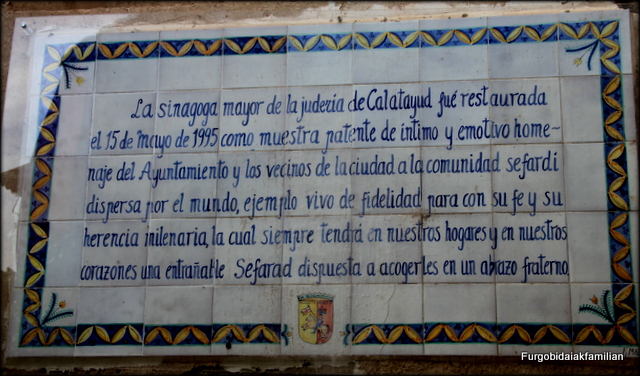 La sinagoga mayor de la judería de Calatayud fué restaurada
el 15 de mayo de 1995 como muestra patente de íntimo y emotivo home-
naje del Ayuntamiento y los vecinos de la ciudad a la comunidad sefardí
dispersa por el mundo, ejemplo vivo de fidelidad para con su fe y su
herencia milenaria, la cual siempre tendrá en nuestros hogares y en nuestros
corazones una entrañable Sefarad dispuesta a acogerles en un abrazo fraterno.
Furgobidaiakfamilian